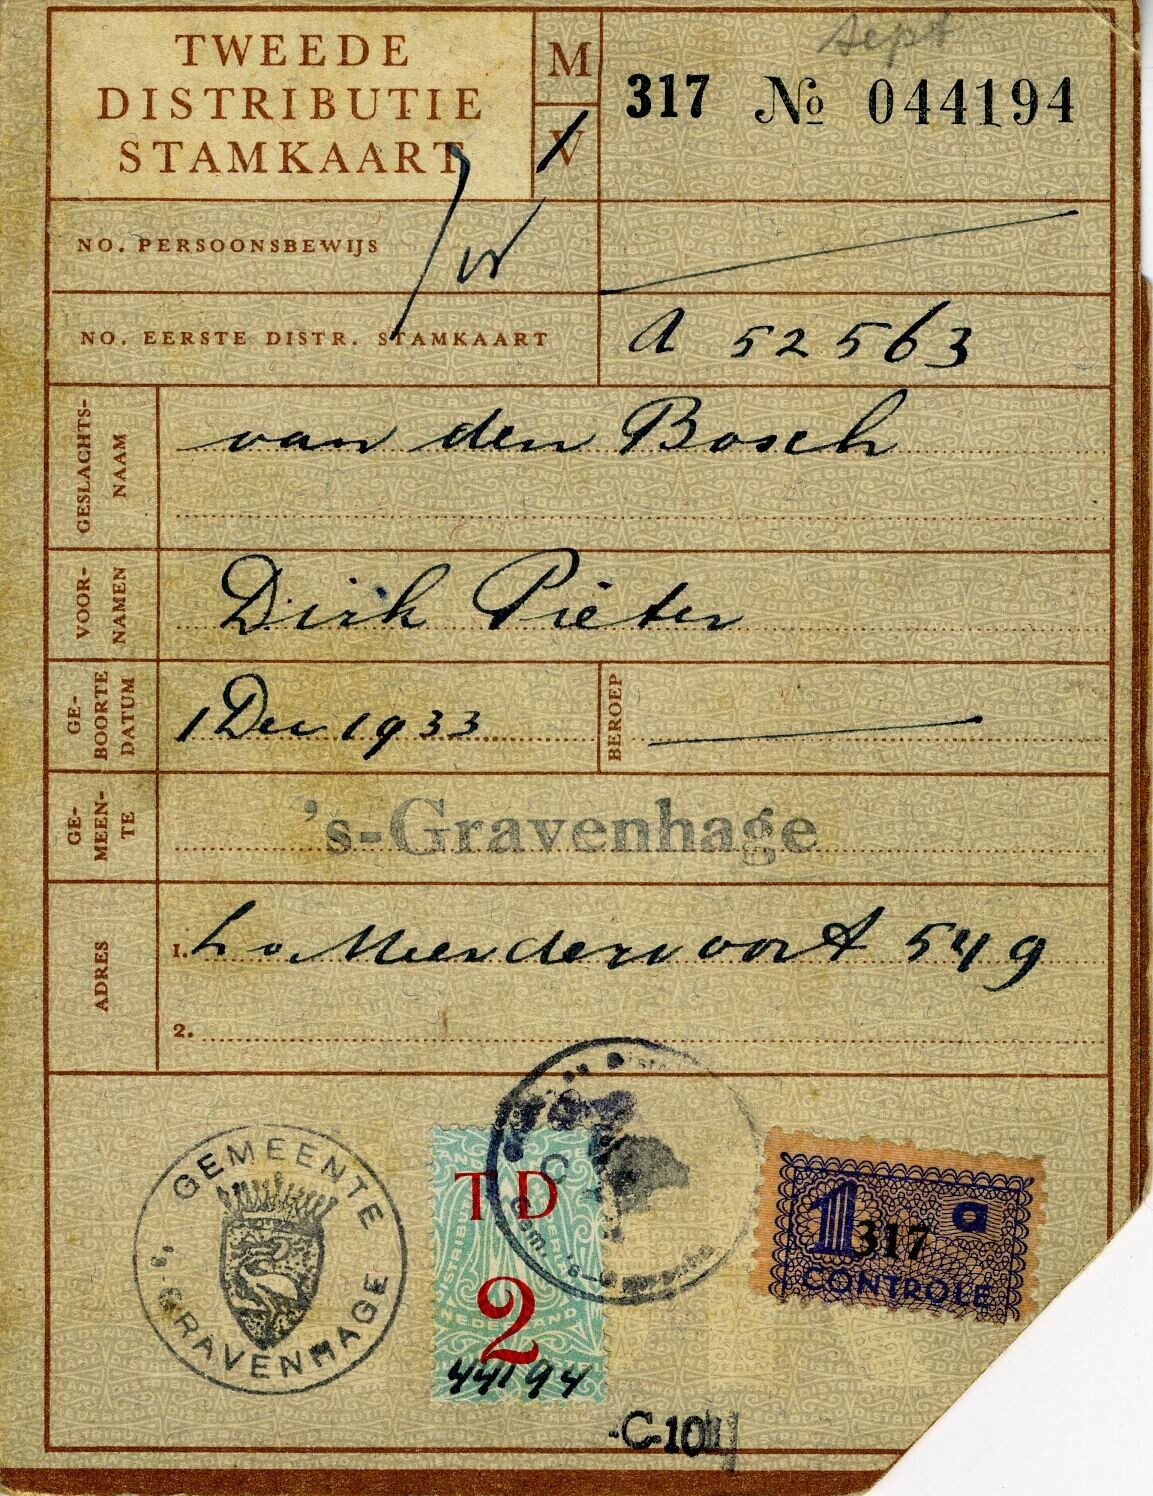 Sept
TWEEDE
DISTRIBUTIE
STAMKAART
M
V
317 № 044194
NO. PERSOONSBEWIJS
NO. EERSTE DISTR. STAMKAART
A 52563
GESLACHTS-
NAAM
van den Bosch
VOOR-
NAMEN
Dirk Pieter
GE-
BOORTE
DATUM
1 Dec 1933
BEROEP
GE-
MEEN-
TE
's-Gravenhage
ADRES
1. L v. Meerdervoort 549
2.
GEMEENTE
'S-GRAVENHAGE
TD
2
44194
Gem. 's-Gravenhage
1 a
317
CONTROLE
-C-10